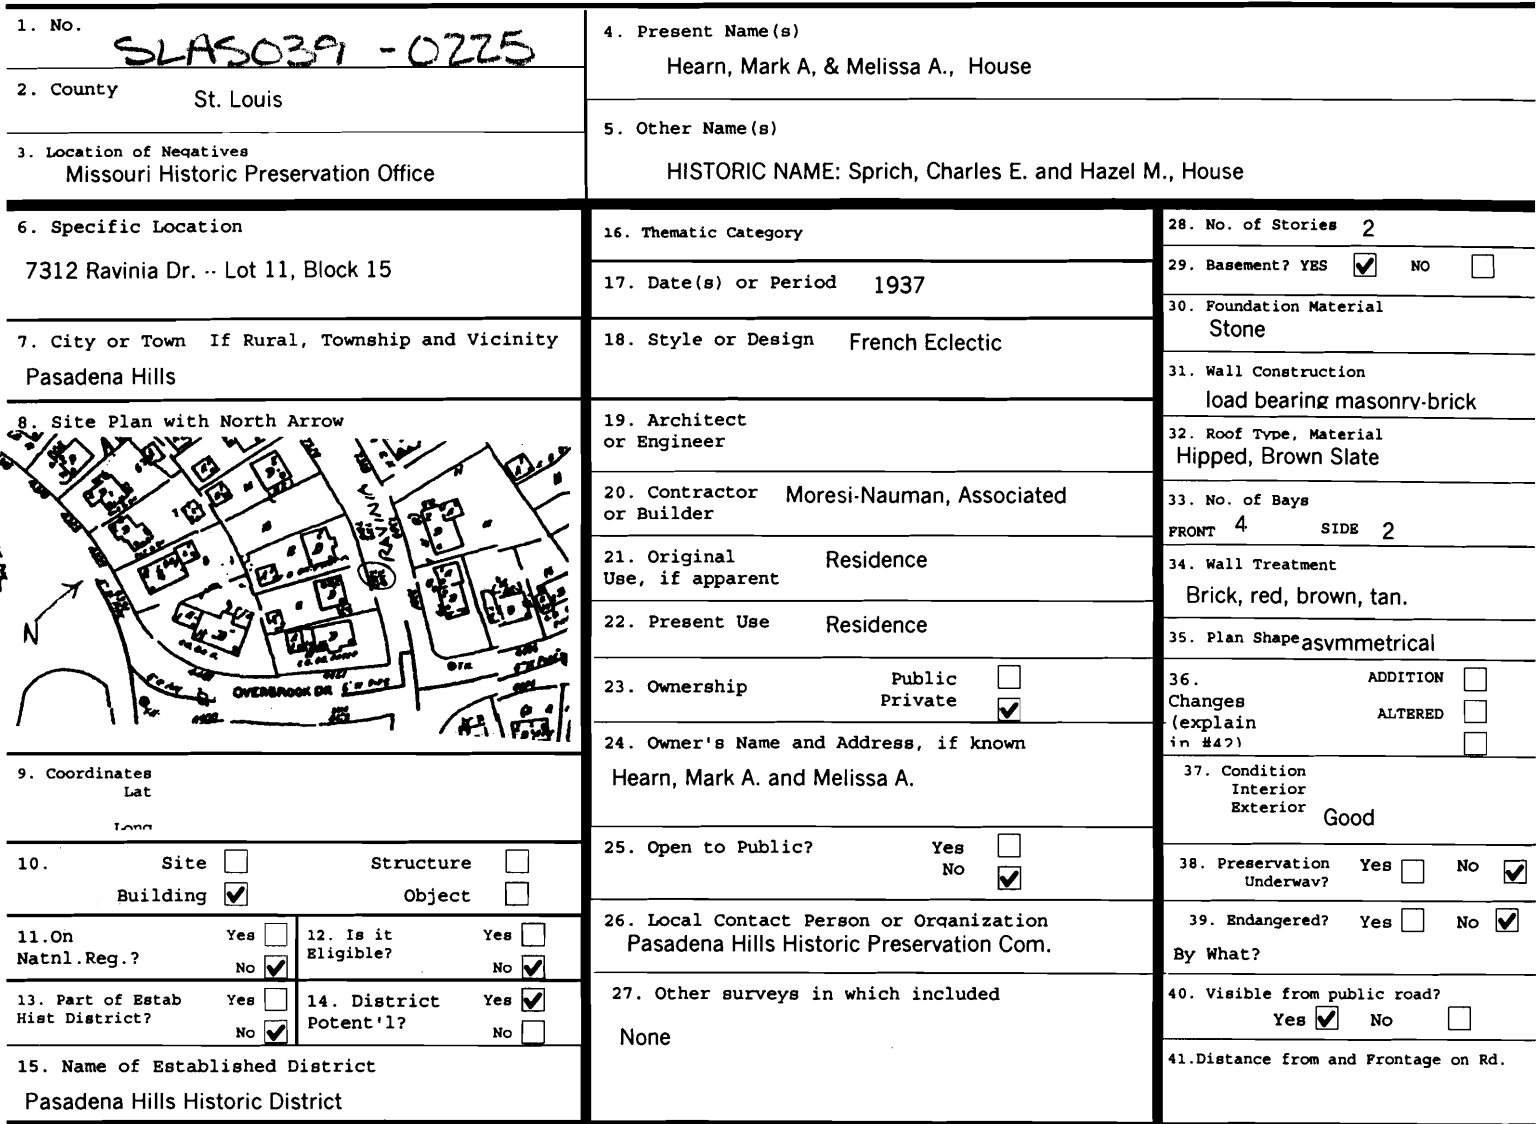 1. No.
SLAS039 -0225
2. County
St. Louis
3. Location of Negatives
Missouri Historic Preservation Office
4. Present Name(s)
Hearn, Mark A, & Melissa A., House
5. Other Name(s)
HISTORIC NAME: Sprich, Charles E. and Hazel M., House
6. Specific Location
7312 Ravinia Dr. -- Lot 11, Block 15
7. City or Town If Rural, Township and Vicinity
Pasadena Hills
8. Site Plan with North Arrow
RAVINIA
N
OVERBROOK DR
9. Coordinates
Lat
Long
10. Site Structure
Building ✔ Object
11.On Yes
Natnl.Reg.? No ✔
12. Is it Yes
Eligible? No ✔
13. Part of Estab Yes
Hist District? No ✔
14. District Yes ✔
Potent'l? No
15. Name of Established District
Pasadena Hills Historic District
16. Thematic Category
17. Date(s) or Period 1937
18. Style or Design French Eclectic
19. Architect
or Engineer
20. Contractor Moresi-Nauman, Associated
or Builder
21. Original Residence
Use, if apparent
22. Present Use Residence
23. Ownership Public
Private ✔
24. Owner's Name and Address, if known
Hearn, Mark A. and Melissa A.
25. Open to Public? Yes
No ✔
26. Local Contact Person or Organization
Pasadena Hills Historic Preservation Com.
27. Other surveys in which included
None
28. No. of Stories 2
29. Basement? YES ✔ NO
30. Foundation Material
Stone
31. Wall Construction
load bearing masonry-brick
32. Roof Type, Material
Hipped, Brown Slate
33. No. of Bays
FRONT 4 SIDE 2
34. Wall Treatment
Brick, red, brown, tan.
35. Plan Shape asymmetrical
36. ADDITION
Changes
(explain ALTERED
in #42)
37. Condition
Interior
Exterior Good
38. Preservation Yes No ✔
Underway?
39. Endangered? Yes No ✔
By What?
40. Visible from public road?
Yes ✔ No
41.Distance from and Frontage on Rd.